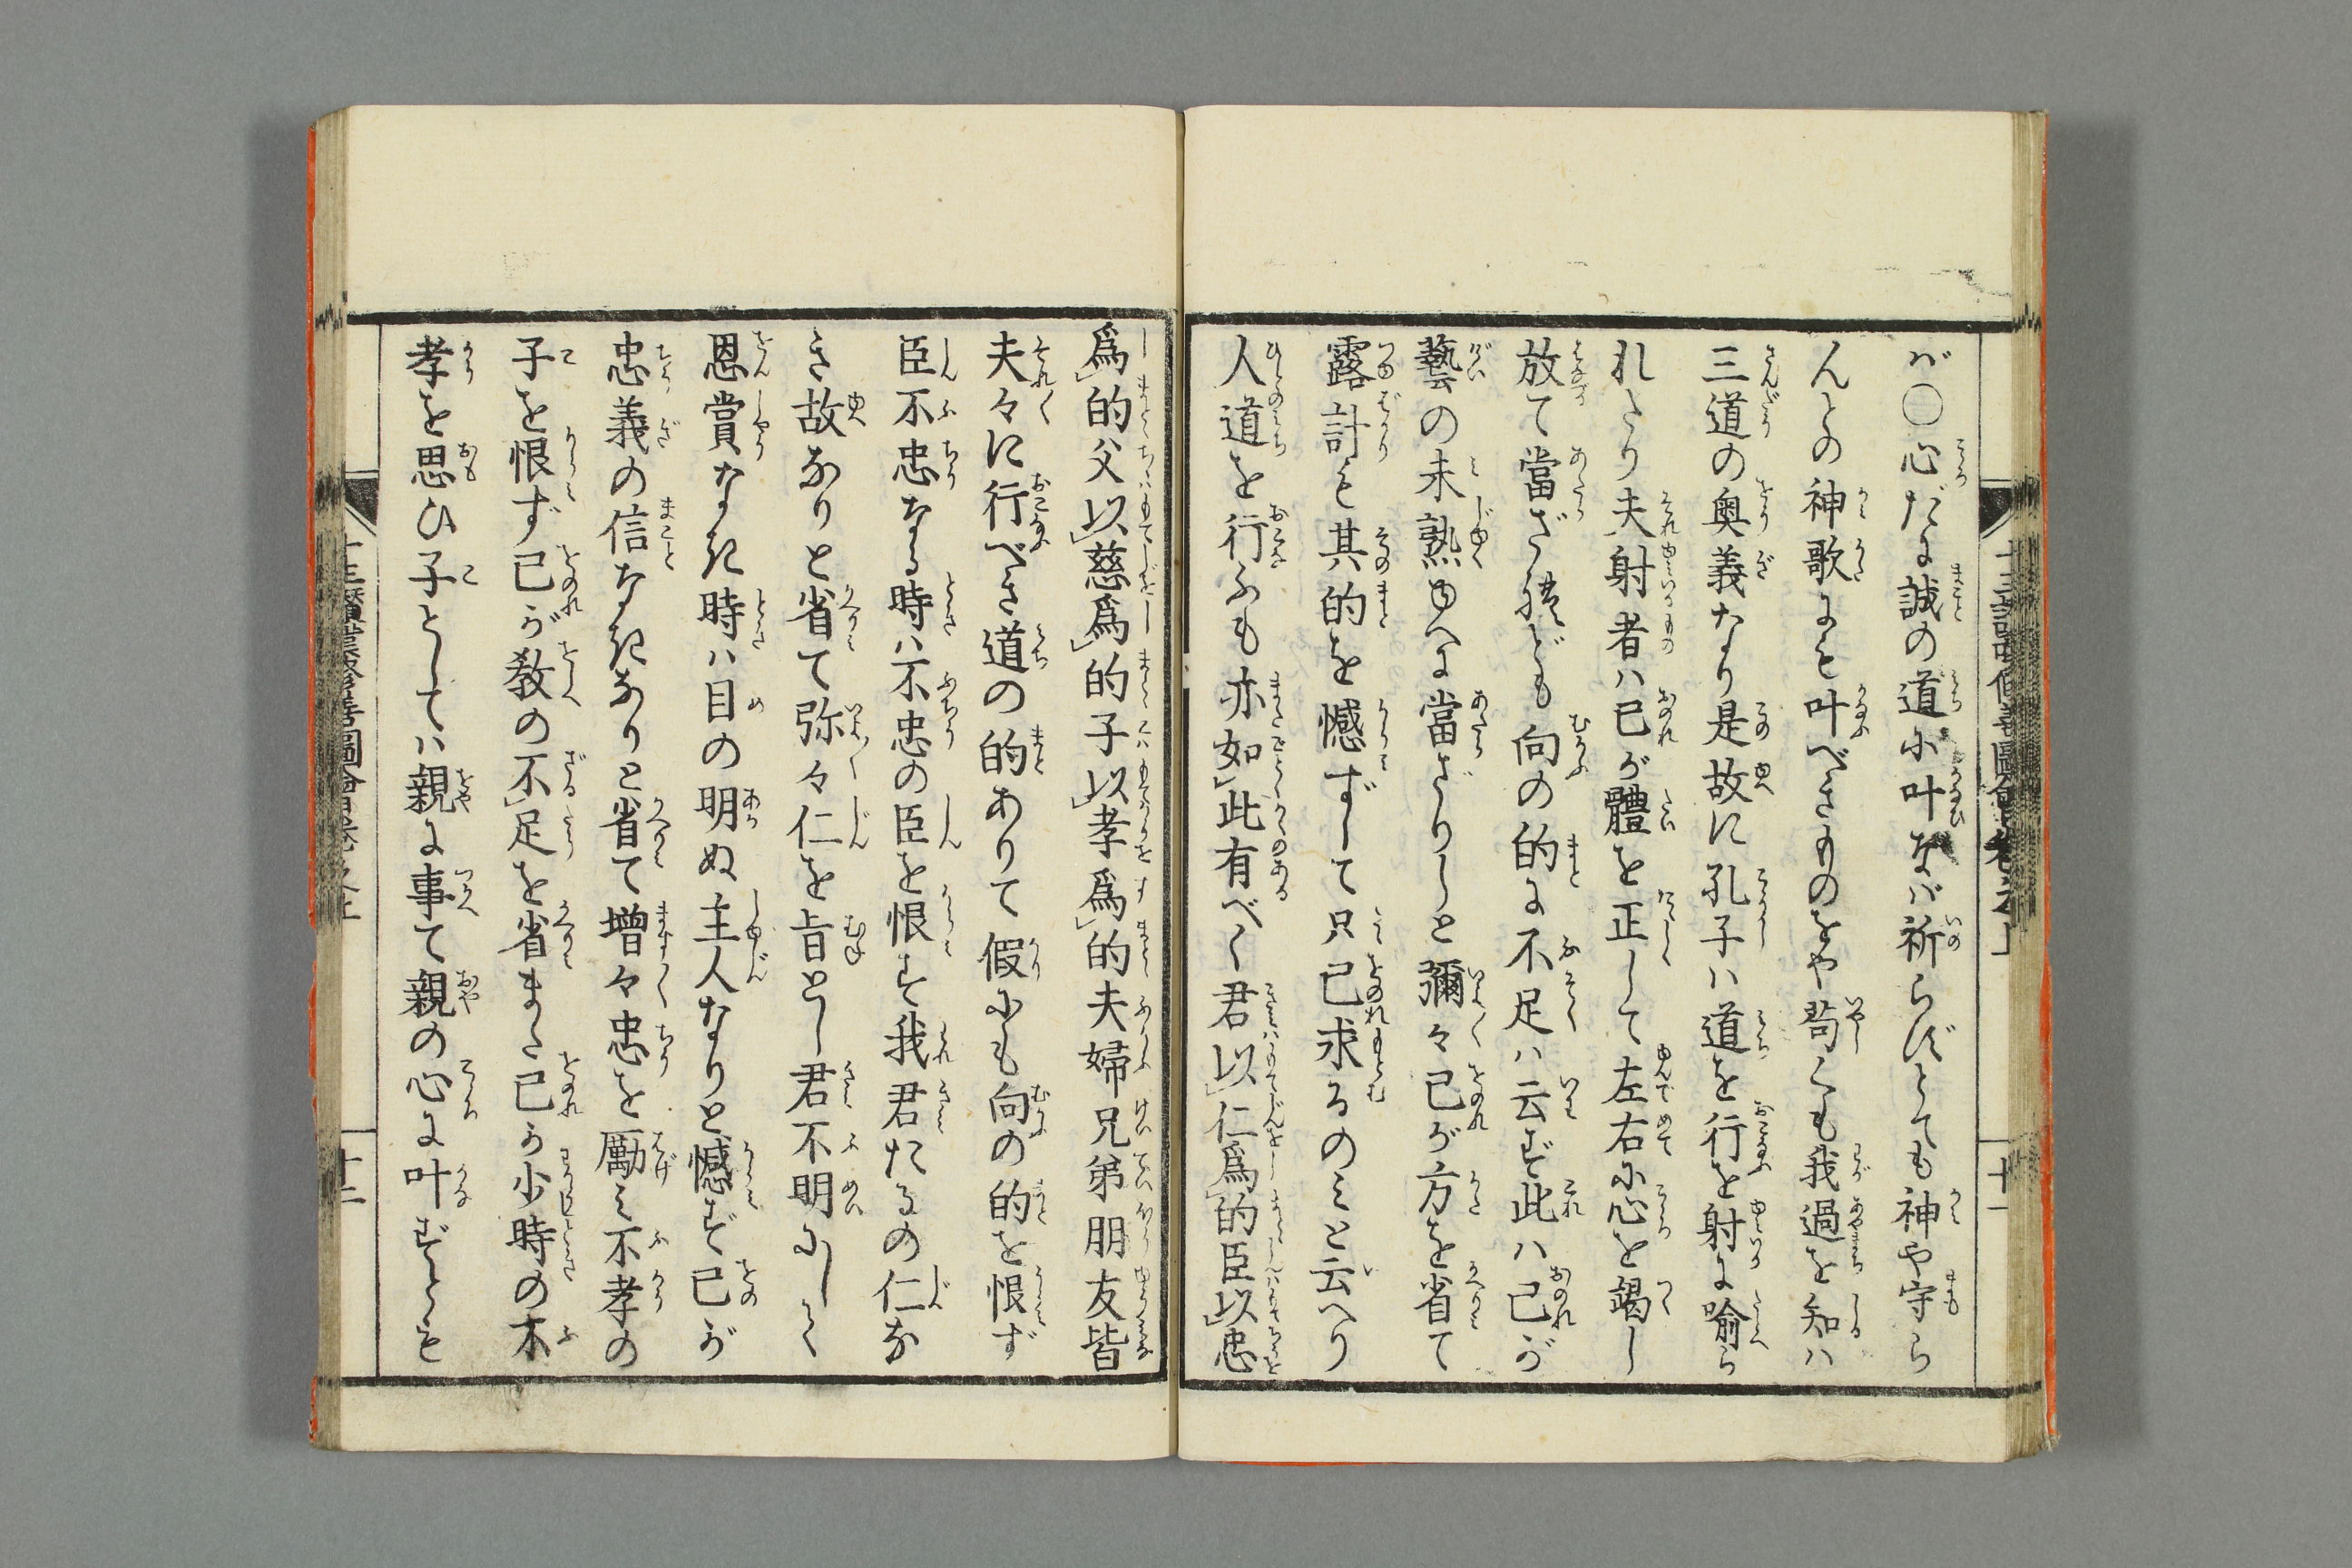 ば〇心だに誠の道に叶なば祈らずとても神や守ら
んとの神歌にも叶べきものをや苟くも我過を知は
三道の奥義なり是故に孔子は道を行を射に喩ら
れたり夫射者は己が體を正して左右に心を竭し
放て當ざれども向の的に不足は云ず此は己が
藝の未熟ゆへに當ざりしと彌々己が方を省て
露計も其的を憾ずして只己求るのみと云へり
人道を行ふも亦如此有べく君以仁爲的臣以忠
爲的父以慈爲的子以孝爲的夫婦兄弟朋友皆
夫々に行べき道の的ありて假にも向の的を恨ず
臣不忠なる時は不忠の臣を恨ず我君たるの仁な
き故なりと省て弥々仁を旨とし君不明にして
恩賞なき時は目の明ぬ主人なりと憾ず己が
忠義の信なきなりと省て増々忠を勵み不孝の
子を恨ず己が教の不足を省また己が少時の不
孝を思ひ子としては親に事て親の心に叶ずとも
十二